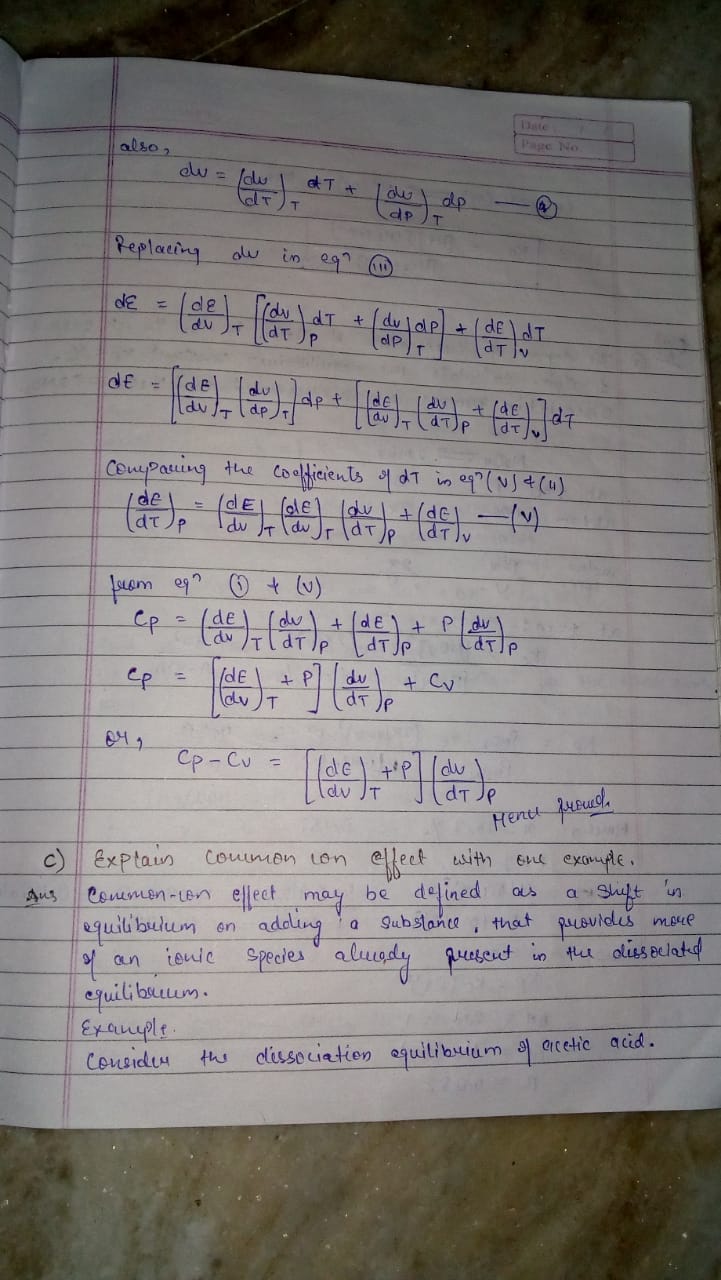 Date
Page No
also,
dv = (dv/dT)_T dT + (dv/dp)_T dp — (4)
Replacing dv in eqⁿ (III)
dE = (dE/dv)_T [(dv/dT)_P dT + (dv/dP)_T dP] + (dE/dT)_V dT
dE = [(dE/dv)_T (dv/dp)_T] dp + [(dE/dv)_T (dv/dT)_P + (dE/dT)_V] dT
Comparing the coefficients of dT in eqⁿ (V) & (4)
(dE/dT)_P = (dE/dv)_T (dE/dv)_T (dv/dT)_P + (dE/dT)_V — (V)
from eqⁿ (i) & (V)
Cp = (dE/dv)_T (dv/dT)_P + (dE/dT)_P + P (dv/dT)_P
Cp = [(dE/dv)_T + P] (dv/dT)_P + Cv
or,
Cp - Cv = [(dE/dv)_T + P] (dv/dT)_P
Hence proved.
c) Explain common ion effect with one example.
Ans Common-ion effect may be defined as a shift in
equilibrium on adding a substance, that provides more
of an ionic species already present in the dissociated
equilibrium.
Example.
Consider the dissociation equilibrium of acetic acid.